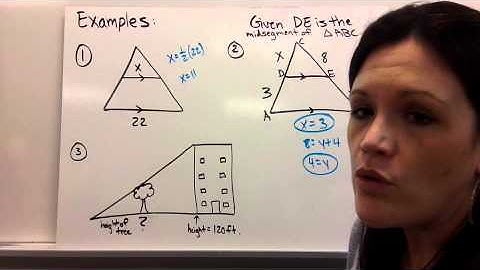 Examples:
①
x
22
x=½(22)
x=11
Given DE is the
midsegment of △ABC
②
C
x
8
D
E
3
A
x=3
8=y+4
4=y
③
height of
tree
?
height=120ft.